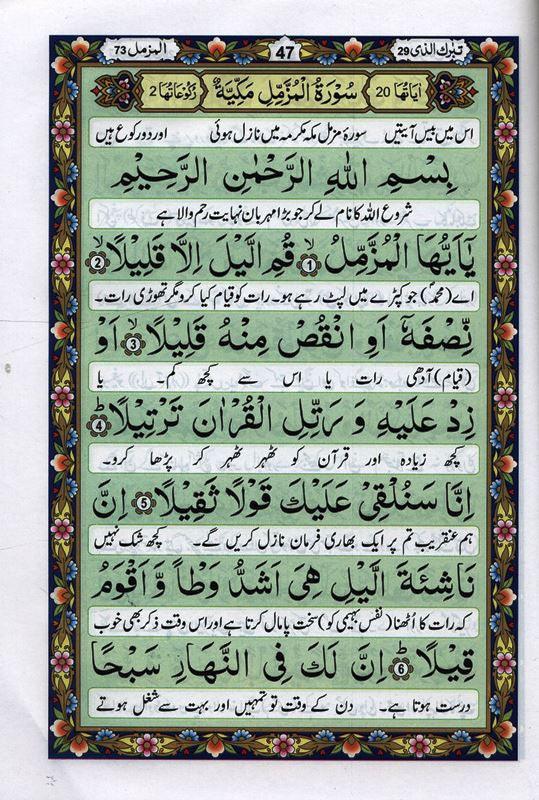 تبٰرك الذى 29
47
المزمل 73
اٰيَاتُهَا 20
سُوْرَةُ الْمُزَّمِّلِ مَكِّيَّةٌ
رُكُوْعَاتُهَا 2
اس میں بیس آیتیں سورۂ مزمل مکہ مکرمہ میں نازل ہوئی اور دو رکوع ہیں
بِسْمِ اللهِ الرَّحْمٰنِ الرَّحِيْمِ
شروع اللہ کا نام لے کر جو بڑا مہربان نہایت رحم والا ہے
يٰۤاَيُّهَا الْمُزَّمِّلُ ۙ1 قُمِ الَّيْلَ اِلَّا قَلِيْلًا ۙ2
اے (محمدؐ) جو کپڑے میں لپٹ رہے ہو۔ رات کو قیام کیا کرو مگر تھوڑی رات۔
نِّصْفَهٗۤ اَوِ انْقُصْ مِنْهُ قَلِيْلًا ۙ3 اَوْ
(قیام) آدھی رات یا اس سے کچھ کم۔ یا
زِدْ عَلَيْهِ وَ رَتِّلِ الْقُرْاٰنَ تَرْتِيْلًا ؕ4
کچھ زیادہ اور قرآن کو ٹھہر ٹھہر کر پڑھا کرو۔
اِنَّا سَنُلْقِىْ عَلَيْكَ قَوْلًا ثَقِيْلًا 5 اِنَّ
ہم عنقریب تم پر ایک بھاری فرمان نازل کریں گے۔ کچھ شک نہیں
نَاشِئَةَ الَّيْلِ هِىَ اَشَدُّ وَطْاً وَّ اَقْوَمُ
کہ رات کا اُٹھنا (نفس بہیمی کو) سخت پامال کرتا ہے اور اس وقت ذکر بھی خوب
قِيْلًا ؕ6 اِنَّ لَكَ فِى النَّهَارِ سَبْحًا
درست ہوتا ہے۔ دن کے وقت تو تمہیں اور بہت سے شغل ہوتے